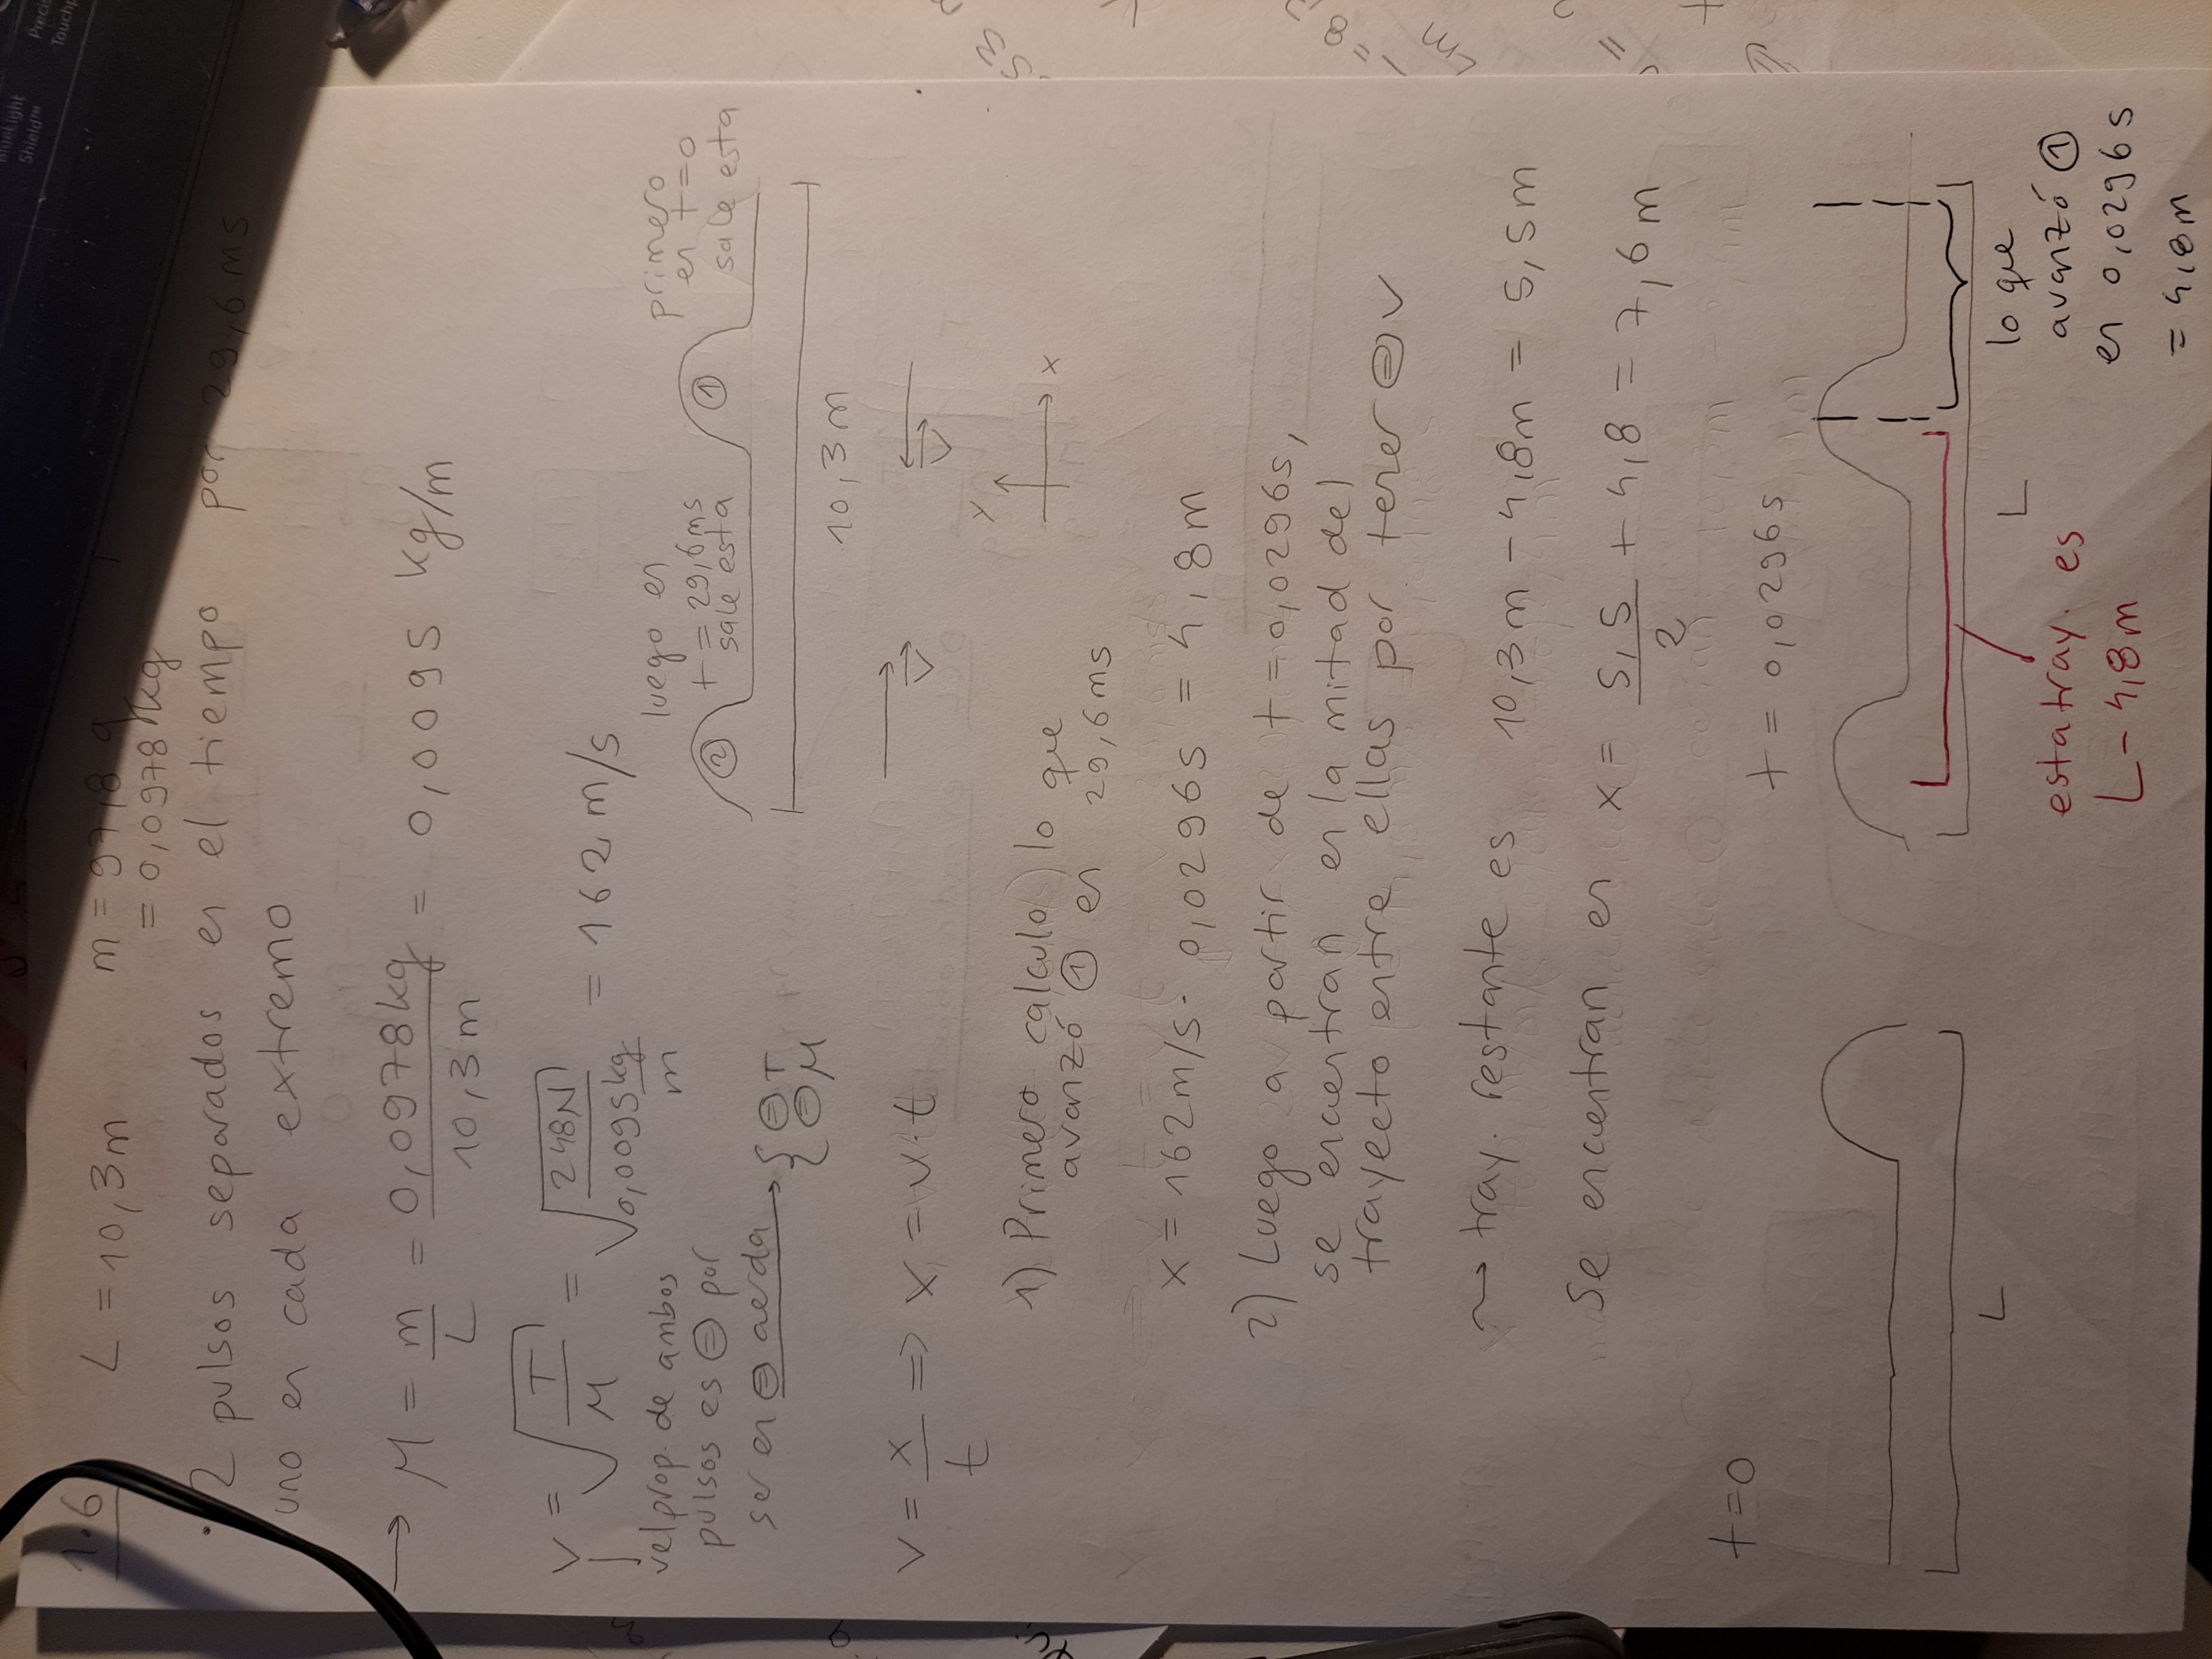 BlueLight
Shield™
Touchp
1.6
L = 10,3m m = 97,8 g
= 0,0978 kg
• 2 pulsos separados en el tiempo por 29,6 ms
uno en cada extremo
→ μ = m/L = 0,0978kg/10,3m = 0,0095 kg/m
v = √(T/μ) = √(248N/0,0095 kg/m) = 162 m/s
vel prop. de ambos
pulsos es ⊜ por
ser en ⊜ cuerda → { ⊜ T
{ ⊜ μ
luego en
t = 29,6ms
sale esta
primero
en t=0
sale esta
② ①
10,3m
v v
y
x
v = x/t => x = v·t
1) Primero calculo lo que
avanzó ① en 29,6ms
x = 162m/s · 0,0296s = 4,8m
2) Luego a partir de t=0,0296s,
se encuentran en la mitad del
trayecto entre ellas por tener ⊜ v
~> tray. restante es 10,3m - 4,8m = 5,5m
Se encuentran en x = 5,5/2 + 4,8 = 7,6m
t=0
t = 0,0296s
L
L
lo que
avanzó ①
en 0,0296s
= 4,8m
esta tray. es
L - 4,8m